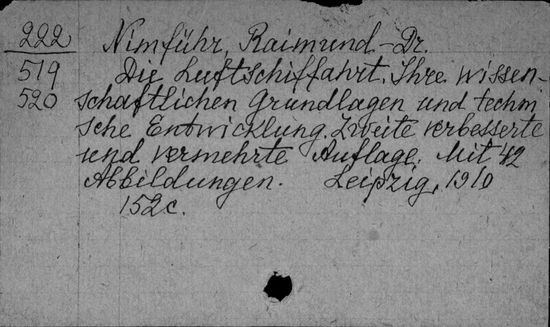 222 Nimführ, Raimund - Dr.
519 Die Luftschiffahrt. Ihre wissen-
520 schaftlichen Grundlagen und techni
sche Entwicklung. Zweite verbesserte
und vermehrte Auflage. Mit 42
Abbildungen. Leipzig, 1910
152 c.